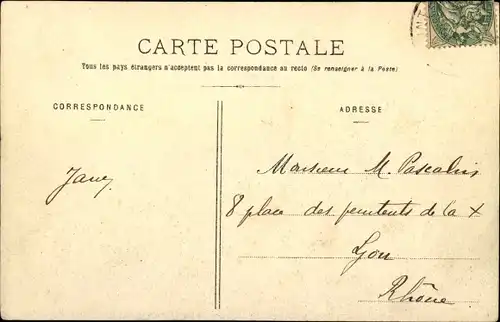 CARTE POSTALE
Tous les pays étrangers n'acceptent pas la correspondance au recto (Se renseigner à la Poste)
CORRESPONDANCE
ADRESSE
Monsieur M. Pascalis
8 place des penitents de la X
Lyon
Rhône